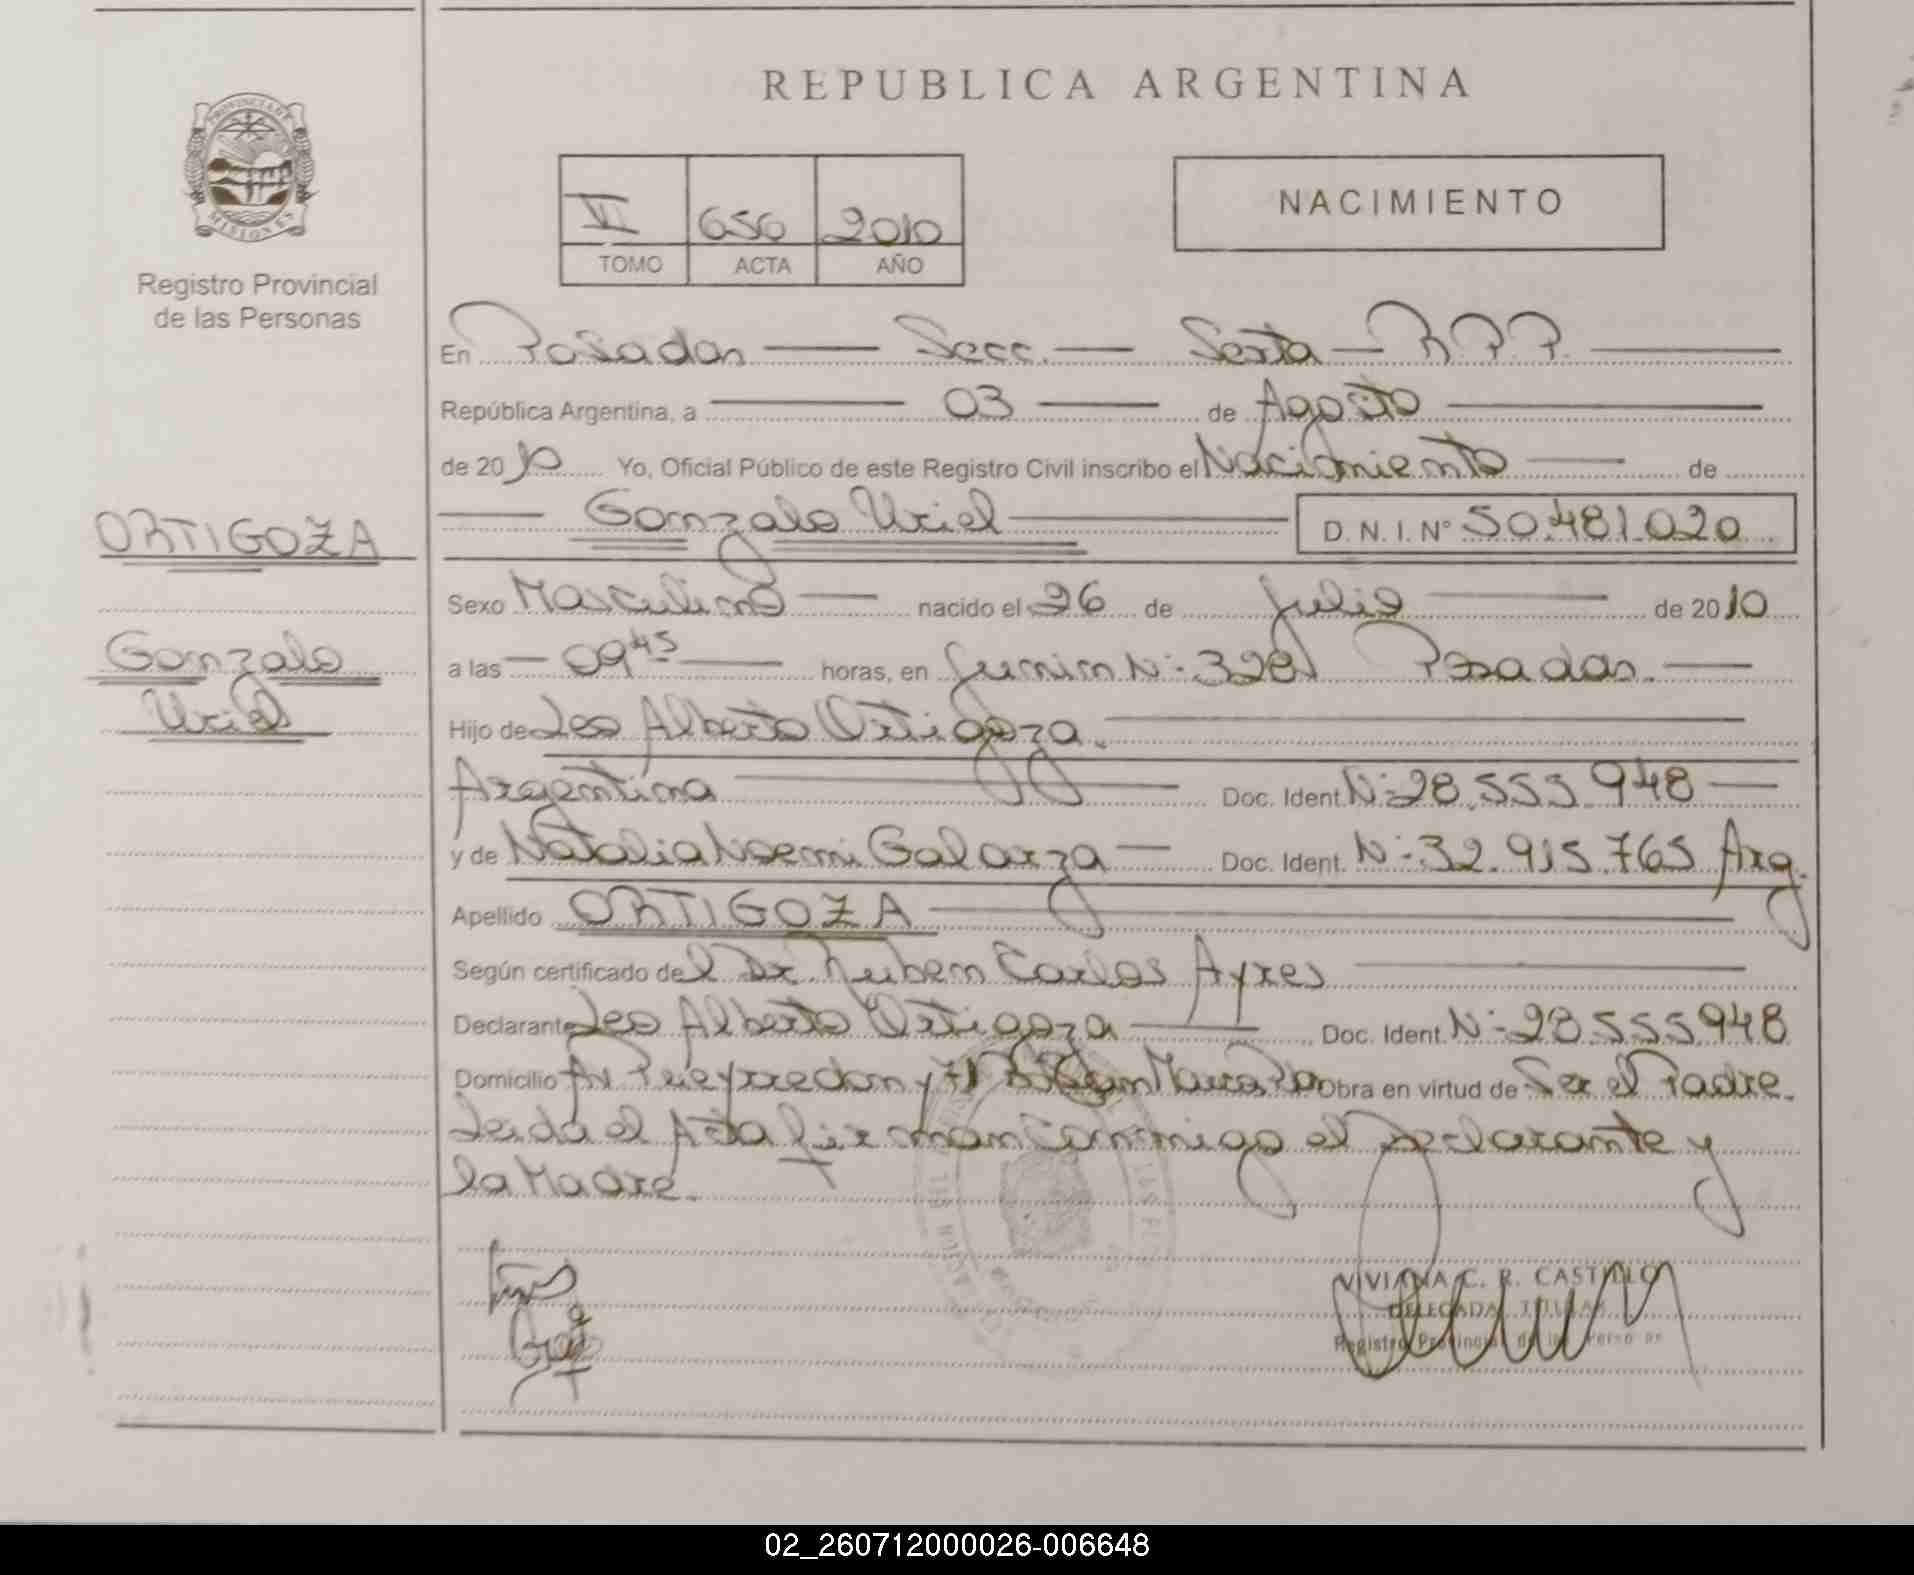 REPUBLICA ARGENTINA
PROVINCIA DE MISIONES
Registro Provincial
de las Personas
VI 656 2010
TOMO ACTA AÑO
NACIMIENTO
En Posadas Secc. Sexta R.P.P.
República Argentina, a 03 de Agosto
de 2010 Yo, Oficial Público de este Registro Civil inscribo el Nacimiento de
Gonzalo Uriel D.N.I. N° 50.481.020
ORTIGOZA
Gonzalo
Uriel
Sexo Masculino nacido el 26 de Julio de 2010
a las 09 45 horas, en Junin N: 3281 Posadas.
Hijo de Leo Alberto Ortigoza.
Argentina Doc. Ident. N: 28.555.948
y de Natalia Noemi Galarza Doc. Ident. N: 32.915.765 Arg.
Apellido ORTIGOZA
Según certificado del Dr Ruben Carlos Ayres
Declarante Leo Alberto Ortigoza Doc. Ident. N: 28.555.948
Domicilio Av Pueyrredon y Obra en virtud de Ser el Padre.
Leida el Acta firman conmigo el declarante y
la Madre.
VIVIANA C. R. CASTILLO
DELEGADA TITULAR
Registro Provincial de las Personas
02_260712000026-006648